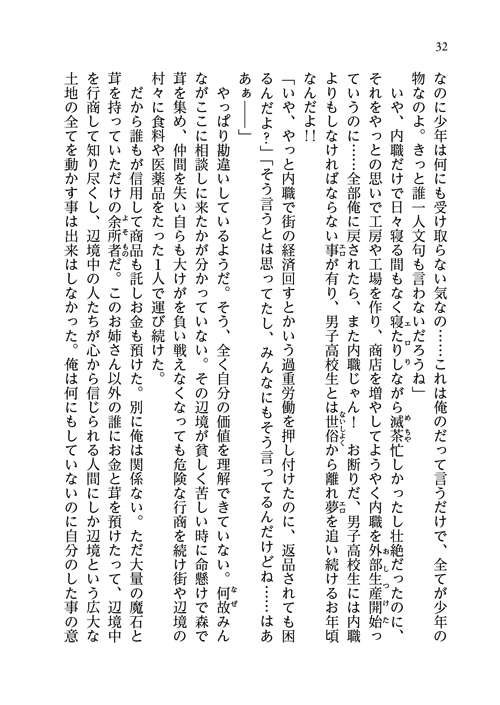 32
なのに少年は何にも受け取らない気なの……これは俺のだって言うだけで、全てが少年の
物なのよ。きっと誰一人文句も言わないだろうね」
　いや、内職だけで日々寝る間もなく寝たりしながら滅茶忙しかったし壮絶だったのに、
それをやっとの思いで工房や工場を作り、商店を増やしてようやく内職を外部生産開始っ
ていうのに……全部俺に戻されたら、また内職じゃん！　お断りだ、男子高校生には内職
よりもしなければならない事が有り、男子高校生とは世俗から離れ夢を追い続けるお年頃
なんだよ!!
「いや、やっと内職で街の経済回すとかいう過重労働を押し付けたのに、返品されても困
るんだよ？」「そう言うとは思ってたし、みんなにもそう言ってるんだけどね……はあ
あぁ――」
　やっぱり勘違いしているようだ。そう、全く自分の価値を理解できていない。何故みん
ながここに相談しに来たかが分かっていない。その辺境が貧しく苦しい時に命懸けで森で
茸を集め、仲間を失い自らも大けがを負い戦えなくなっても危険な行商を続け街や辺境の
村々に食料や医薬品をたった１人で運び続けた。
　だから誰もが信用して商品も託しお金も預けた。別に俺は関係ない。ただ大量の魔石と
茸を持っていただけの余所者だ。このお姉さん以外の誰にお金と茸を預けたって、辺境中
を行商して知り尽くし、辺境中の人たちが心から信じられる人間にしか辺境という広大な
土地の全てを動かす事は出来はしなかった。俺は何にもしていないのに自分のした事の意